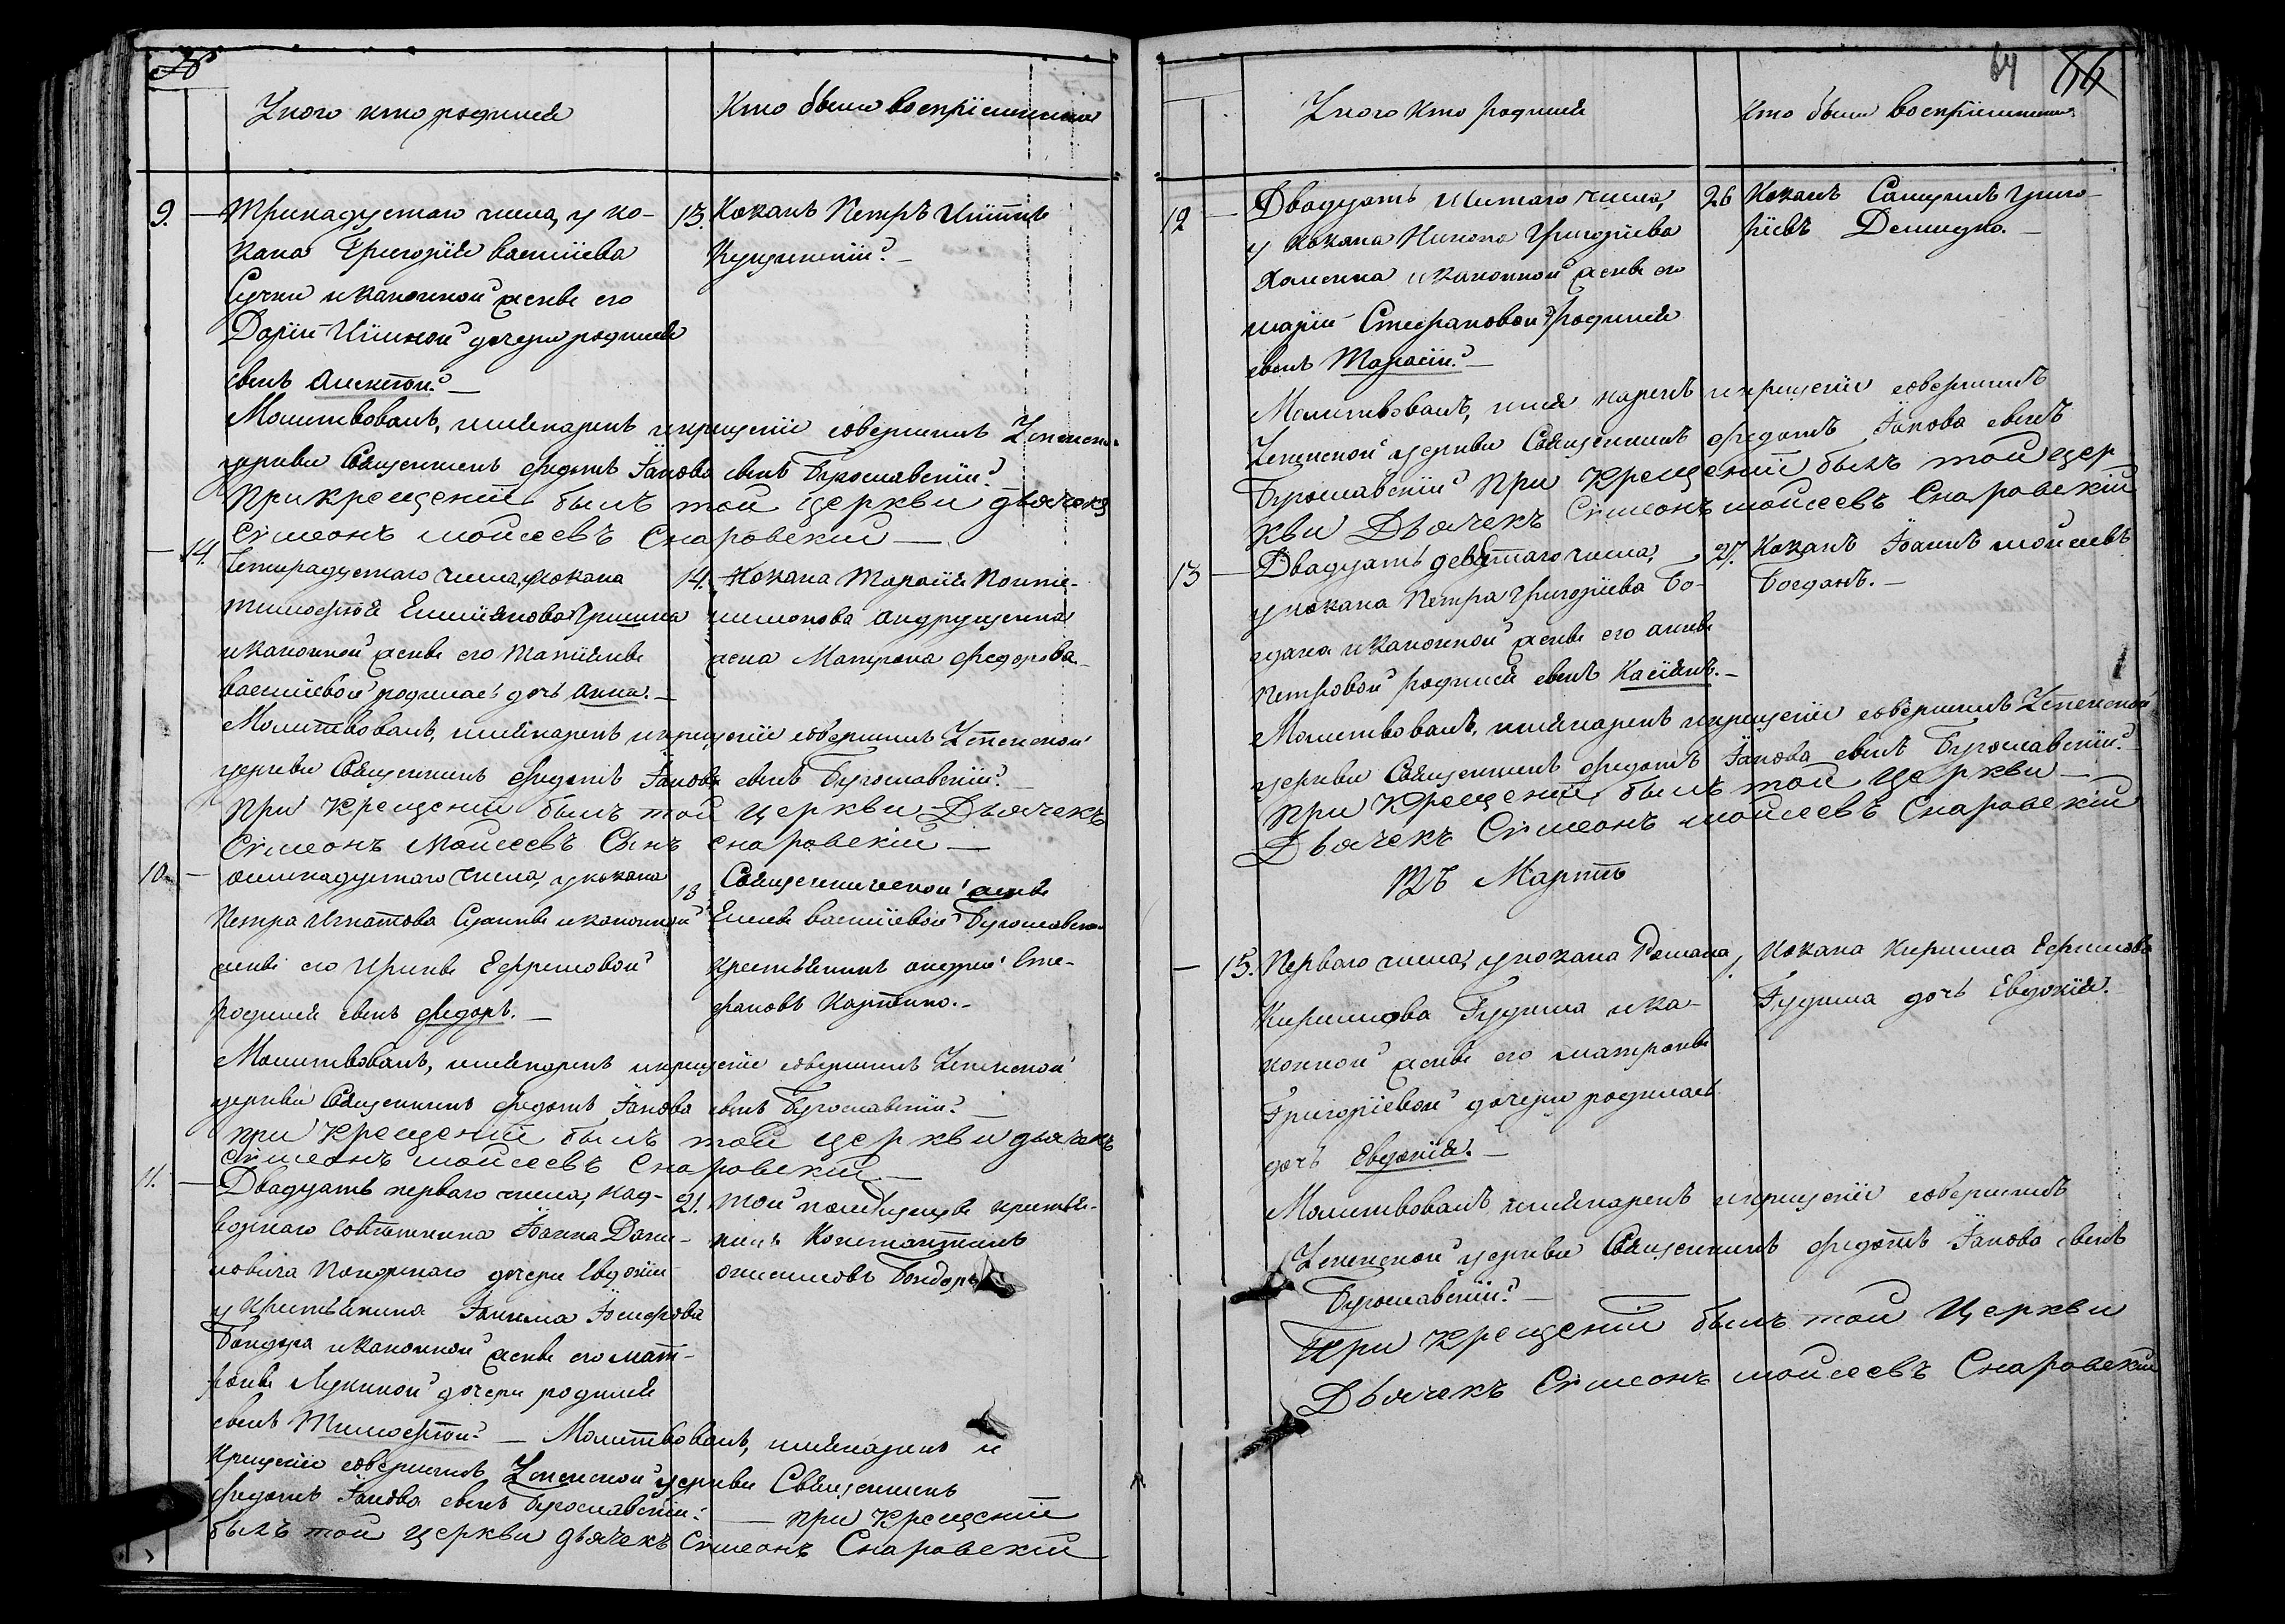 У кого кто родился
Кто были воспріемники
9.
Тринадцатого числа, у ко-
зака Григорія Василіева
Сучки и законной женѣ его
Даріи Иліиной дочери родился
сынъ Алексѣй.
13.
Козакъ Петръ
Молитвовалъ, имя нарекъ и крещеніе совершилъ Успенской
церкви Священникъ Федотъ Іакова сынъ Бугославскій.
При крещеніи былъ той церкви дьячекъ
Сѵмеонъ Мойсеевъ Снаровскій
14.
Четырадцятого числа, у козака
Тимофѣя Гришина
и законной женѣ его Татіянѣ
Василіевой родилась дочь Анна.
14.
Козака Тарасія
Андрущенка
жена Матрона Федорова
Молитвовалъ, имя нарекъ и крещеніе совершилъ Успенской
церкви Священникъ Федотъ Іакова сынъ Бугославскій.
при крещеніи былъ той церкви Дьячекъ
Сѵмеонъ Мойсеевъ Сынъ Снаровскій
10.
осмнадцятого числа, у козака
Петра Игнатова и законной
женѣ его Иринѣ Ефремовой
родился сынъ Федоръ.
18
Священнической женѣ
Еленѣ Василіевой Бугославской
крестьянинъ Андрей Сте-
фановъ
Молитвовалъ, имя нарекъ и крещеніе совершилъ Успенской
церкви Священникъ Федотъ Іакова сынъ Бугославскій.
при крещеніи былъ той церкви дьячекъ
Сѵмеонъ Мойсеевъ Снаровскій
11.
Двадцать перваго числа, над-
ворнаго Совѣтника Іоанна Дани-
ловича дочери Евдокіи
у крестьянина Іакима Іосифова
Бондаря и законной женѣ его Мат-
ронѣ Лукиной дочери родился
сынъ Тимофѣй. — Молитвовалъ, имя нарекъ и
21.
той помѣщицѣ крестья-
нинъ Константинъ
Онисимовъ Бондарь
крещеніе совершилъ Успенской церкви Священникъ
Федотъ Іакова сынъ Бугославскій. — при крещеніи
былъ той церкви дьячекъ Сѵмеонъ Снаровскій
64 66
У кого кто родился
Кто были воспріемники
12
Двадцать шестаго числа,
у козака Никона Григоріева
Хоменка и законной женѣ его
Маріи Стефановой родился
сынъ Тарасій.
26
Козакъ Самуилъ Григо-
ріевъ Демидко.
Молитвовалъ, имя нарекъ и крещеніе совершилъ
Успенской церкви Священникъ Федотъ Іакова сынъ
Бугославскій при крещеніи былъ той цер
кви Дьячекъ Сѵмеонъ Мойсеевъ Снаровскій
13
Двадцать девятаго числа,
у козака Петра Григоріева Бо-
гдана и законной женѣ его Аннѣ
Петровой родился сынъ Касіянъ.
27.
Козакъ Іоаннъ Мойсеевъ
Богданъ.
Молитвовалъ, имя нарекъ и крещеніе совершилъ Успенской
церкви Священникъ Федотъ Іакова сынъ Бугославскій.
При крещеніи былъ той церкви
Дьячекъ Сѵмеонъ Мойсеевъ Снаровскій
Въ Мартѣ
15.
Перваго числа, у козака Романа
Кирилова Гудима и за-
конной женѣ его Матронѣ
Григоріевой дочери родилась
дочь Евдокія.
1.
Козака Кирилла Ефимова
Гудима дочь Евдокія.
Молитвовалъ имя нарекъ и крещеніе совершилъ
Успенской церкви Священникъ Федотъ Іакова сынъ
Бугославскій.
При крещеніи былъ той Церкви
Дьячекъ Сѵмеонъ Мойсеевъ Снаровскій